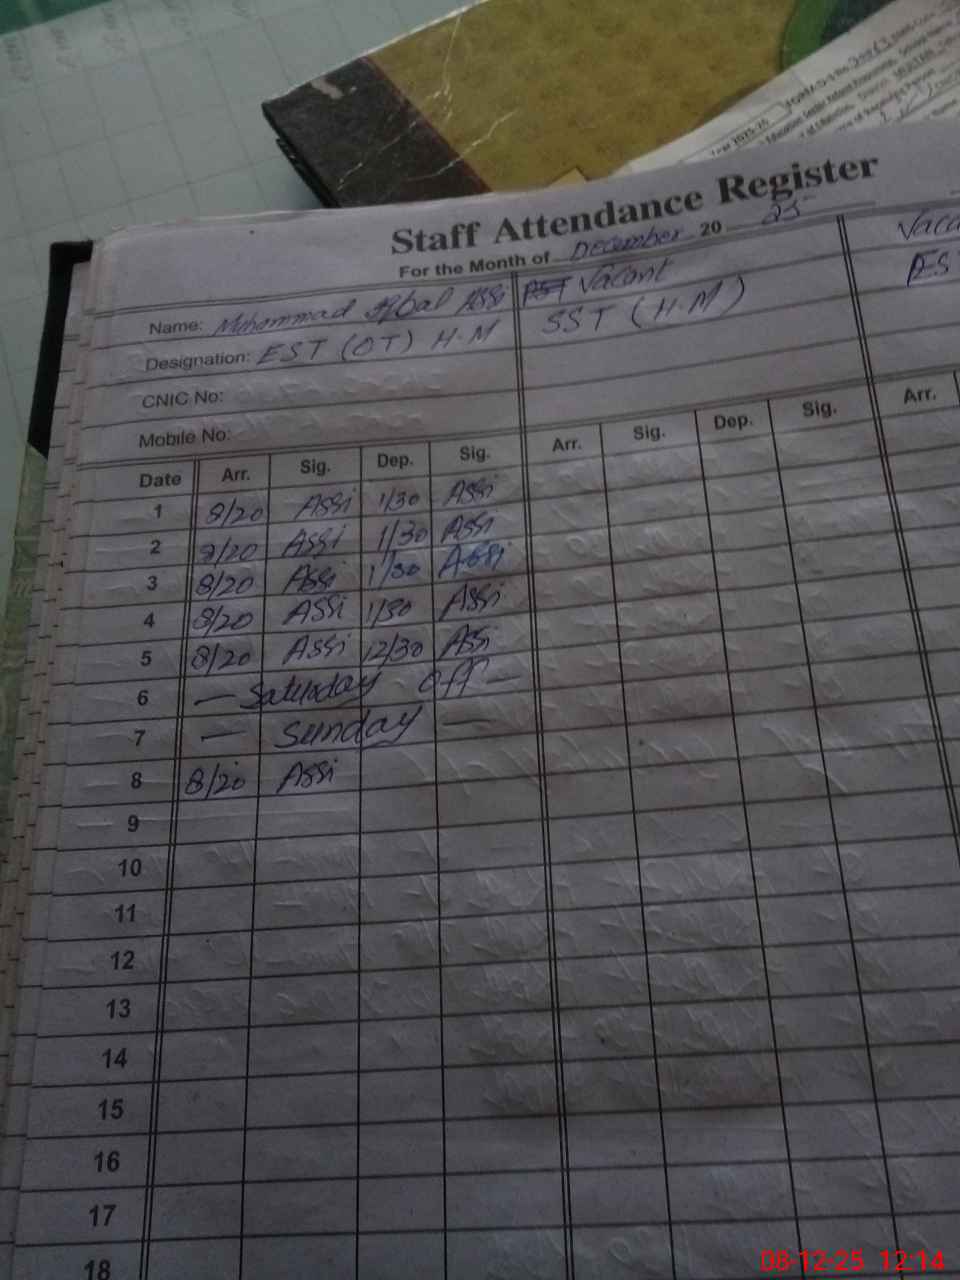 Year 2025-26
Staff Attendance Register
For the Month of December 20 25
Name: Muhammad Iqbal Assi Vacant
Designation: EST (OT) H.M SST (H.M)
CNIC No:
Mobile No:
Date Arr. Sig. Dep. Sig. Arr. Sig. Dep. Sig. Arr.
1 8/20 Assi 1/30 Assi
2 8/20 Assi 1/30 Assi
3 8/20 Assi 1/30 Assi
4 8/20 Assi 1/30 Assi
5 8/20 Assi 12/30 Assi
6 — Saturday Off —
7 — Sunday —
8 8/20 Assi
9
10
11
12
13
14
15
16
17
18
08-12-25 12:14